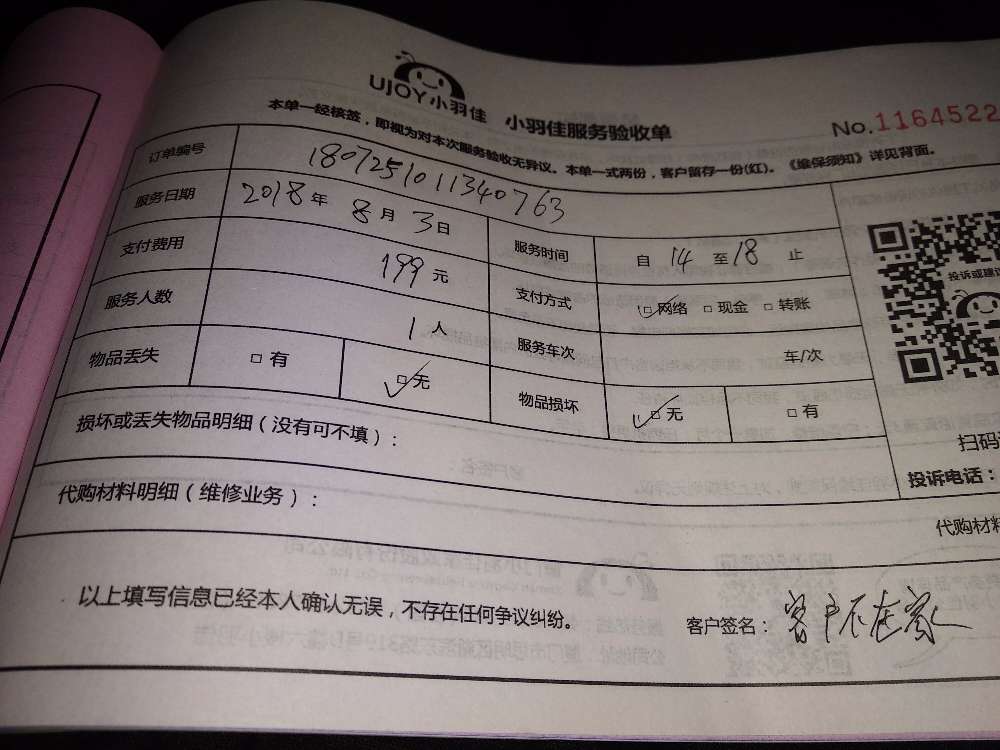 UJOY小羽佳 小羽佳服务验收单
No.1164522
本单一经核签，即视为对本次服务验收无异议。本单一式两份，客户留存一份(红)。《维保须知》详见背面。
订单编号 1807251011340763
服务日期 2018年 8月 3日 服务时间 自 14 至 18 止
支付费用 199元 支付方式 □网络 □现金 □转账
服务人数 1人 服务车次 车/次
物品丢失 □有 □无 物品损坏 □无 □有
投诉或建议
扫码
损坏或丢失物品明细（没有可不填）：
投诉电话：
代购材料明细（维修业务）：
代购材料
以上填写信息已经本人确认无误，不存在任何争议纠纷。 客户签名：客户不在家